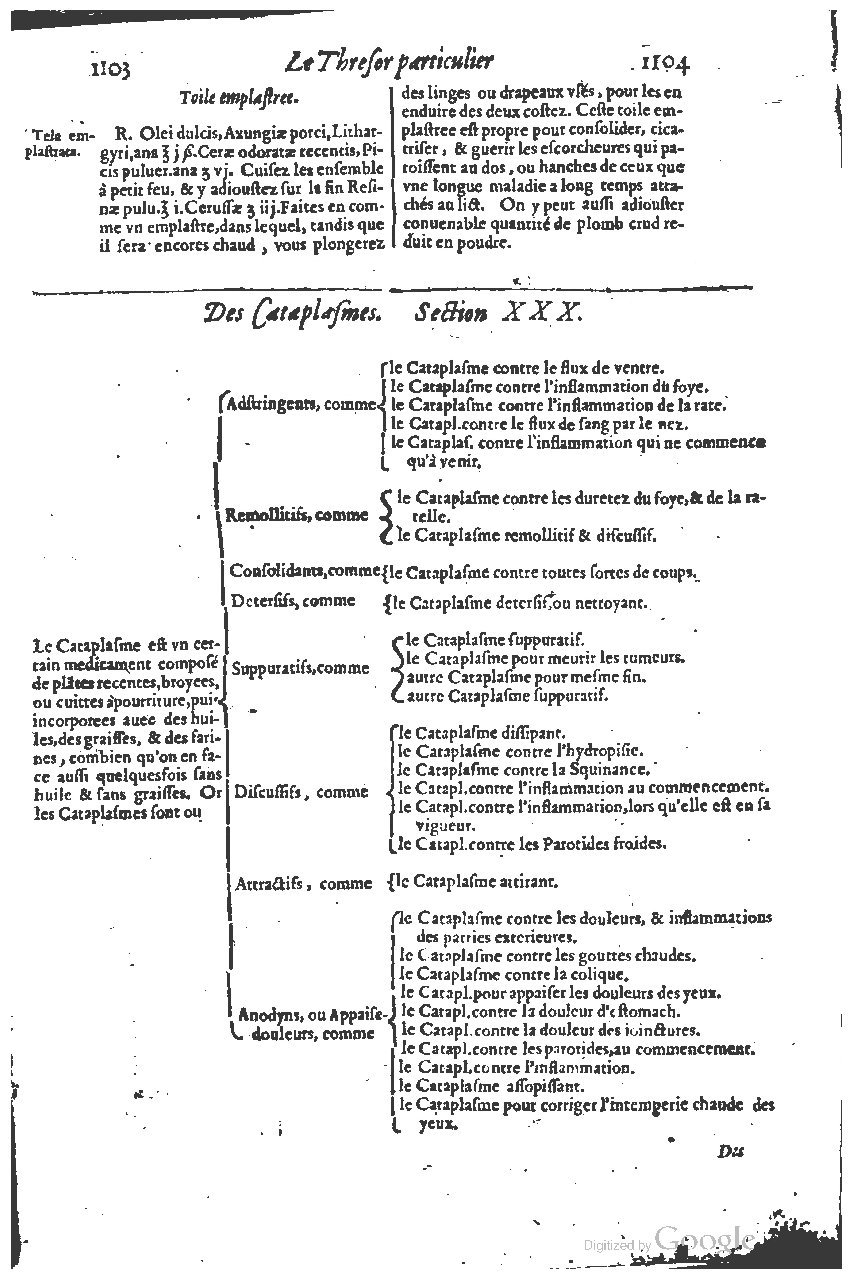 1103
Le Thresor particulier
1104
Toile emplastree.
Tela em-
plastrata.
R. Olei dulcis, Axungiæ porci, Lithar-
gyri, ana ʒ j ß. Ceræ odoratæ recentis, Pi-
cis puluer. ana ʒ vj. Cuisez les ensemble
à petit feu, & y adioustez sur la fin Resi-
næ pulu. ʒ i. Cerussæ ʒ iij. Faites en com-
me vn emplastre, dans lequel, tandis que
il sera encores chaud, vous plongerez
des linges ou drapeaux vsés, pour les en
enduire des deux costez. Ceste toile em-
plastree est propre pour consolider, cica-
triser, & guerir les escorcheures qui pa-
roissent au dos, ou hanches de ceux que
vne longue maladie a long temps atta-
chés au lict. On y peut aussi adiouster
conuenable quantité de plomb crud re-
duit en poudre.
Des Cataplasmes. Section XXX.
Le Cataplasme est vn cer-
tain medicament composé
de plātes recentes, broyees,
ou cuittes à pourriture, puis
incorporees auec des hui-
les, des graisses, & des fari-
nes, combien qu'on en fa-
ce aussi quelquesfois sans
huile & sans graisses. Or
les Cataplasmes sont ou
Adstringents, comme
le Cataplasme contre le flux de ventre.
le Cataplasme contre l'inflammation du foye.
le Cataplasme contre l'inflammation de la rate.
le Catapl. contre le flux de sang par le nez.
le Cataplas. contre l'inflammation qui ne commence
qu'à venir.
Remollitifs, comme
le Cataplasme contre les duretez du foye, & de la ra-
telle.
le Cataplasme remollitif & discussif.
Consolidants, comme
le Cataplasme contre toutes sortes de coups.
Detersifs, comme
le Cataplasme detersif, ou nettoyant.
Suppuratifs, comme
le Cataplasme suppuratif.
le Cataplasme pour meurir les tumeurs.
autre Cataplasme pour mesme fin.
autre Cataplasme suppuratif.
Discussifs, comme
le Cataplasme dissipant.
le Cataplasme contre l'hydropisie.
le Cataplasme contre la Squinance.
le Catapl. contre l'inflammation au commencement.
le Catapl. contre l'inflammation, lors qu'elle est en sa
vigueur.
le Catapl. contre les Parotides froides.
Attractifs, comme
le Cataplasme attirant.
Anodyns, ou Appaise-
douleurs, comme
le Cataplasme contre les douleurs, & inflammations
des parties exterieures.
le Cataplasme contre les gouttes chaudes.
le Cataplasme contre la colique.
le Catapl. pour appaiser les douleurs des yeux.
le Catapl. contre la douleur d'estomach.
le Catapl. contre la douleur des ioinctures.
le Catapl. contre les parotides, au commencement.
le Catapl. contre l'inflammation.
le Cataplasme assopissant.
le Cataplasme pour corriger l'intemperie chaude des
yeux.
Du
Digitized by Google